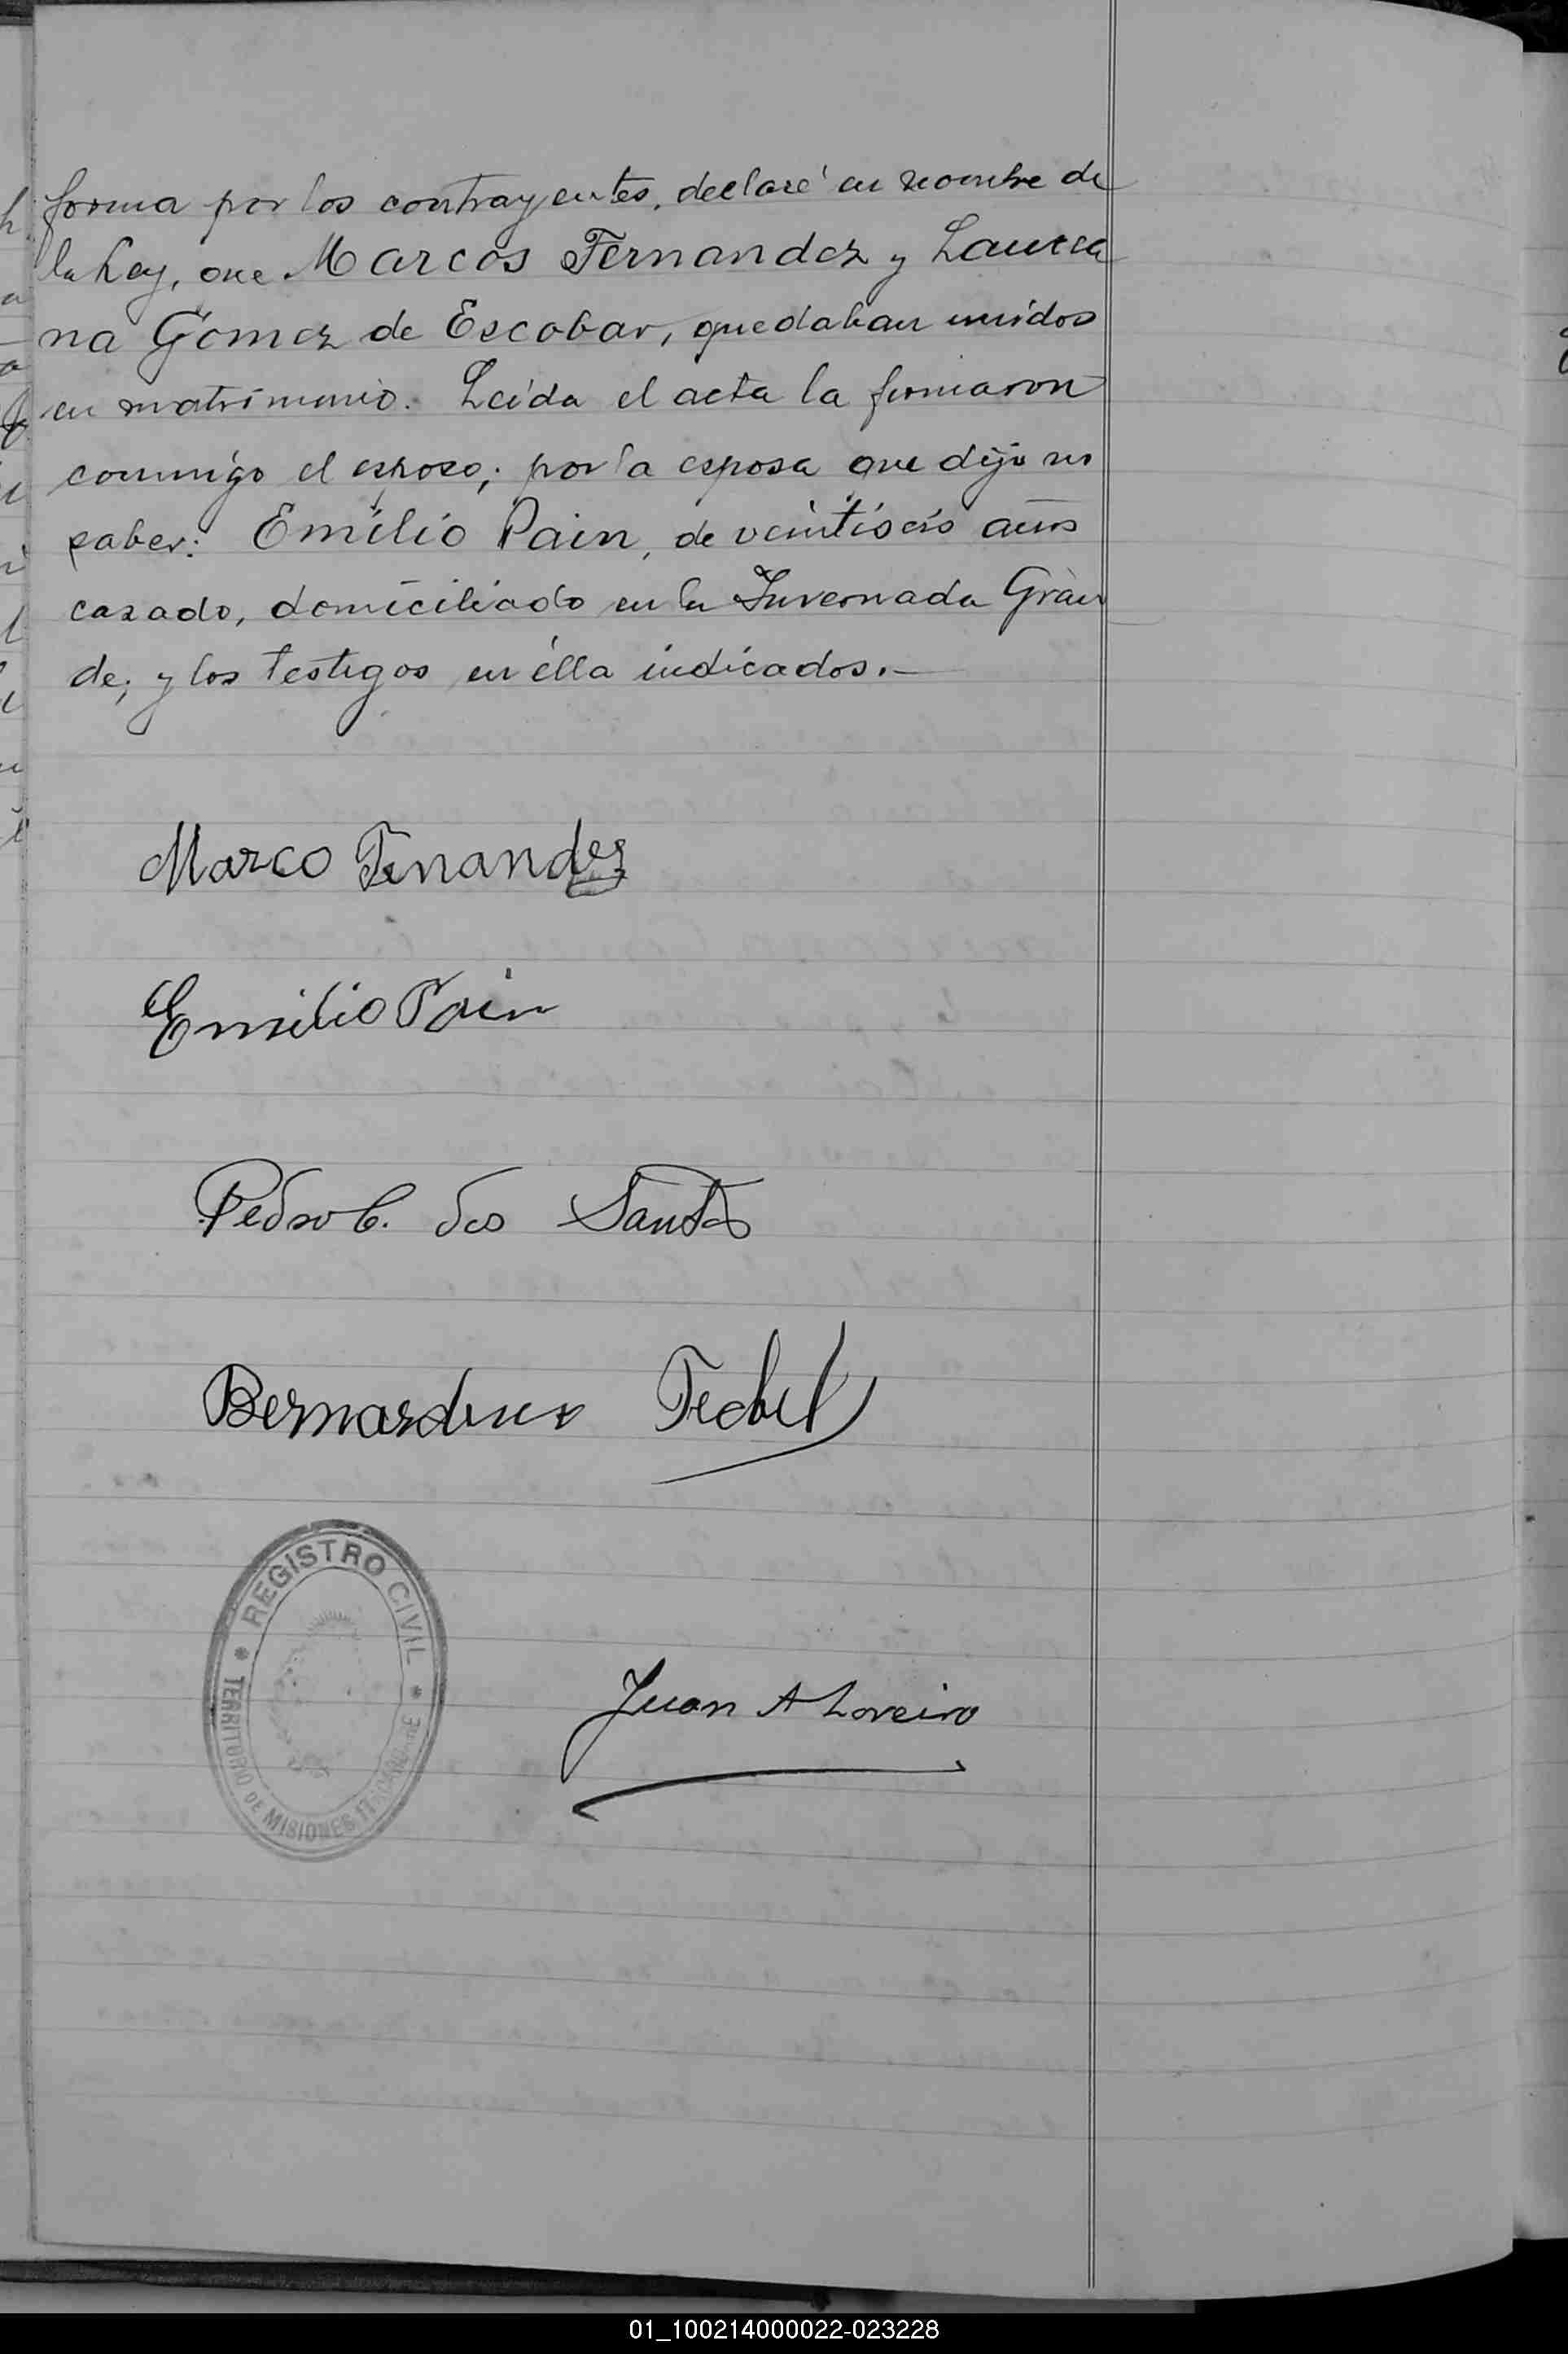 forma por los contrayentes, declaré en nombre de
la Ley, que Marcos Fernandez y Laurea
na Gomez de Escobar, quedaban unidos
en matrimonio. Leida el acta la firmaron
conmigo el esposo; por la esposa que dijo no
saber: Emilio Pain, de veintiseis años
casado, domiciliado en la Invernada Gran
de; y los testigos en élla indicados.—
Marco Fernandez
Emilio Pain
Pedro C. dos Santos
Bernardino
REGISTRO CIVIL
TERRITORIO DE MISIONES
Juan A Loreiro
01_100214000022-023228